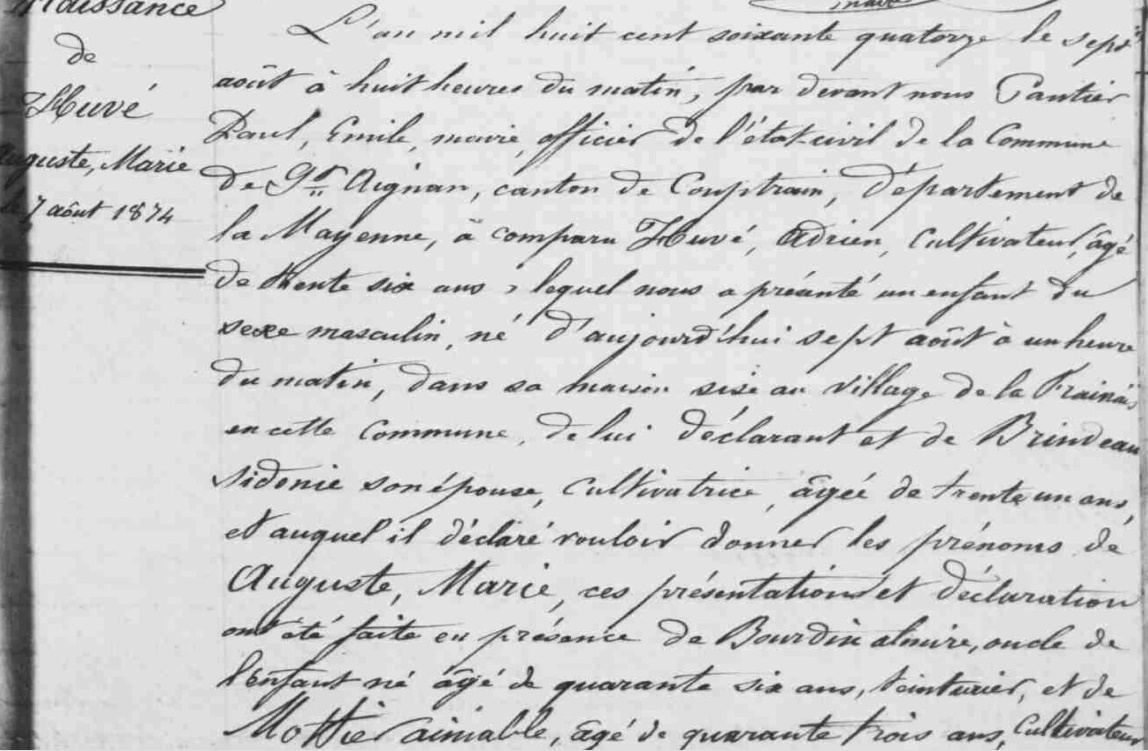 Naissance
de
Huvé
Auguste, Marie
le 7 août 1874
maire
L'an mil huit cent soixante quatorze le sept
août à huit heures du matin, par devant nous Pautier
Paul, Emile, maire, officier de l'état-civil de la Commune
de St Aignan, canton de Couptrain, département de
la Mayenne, à comparu Huvé, Adrien, Cultivateur, âgé
de trente six ans, lequel nous a préanté un enfant du
sexe masculin, né d'aujourd'hui sept août à un heure
du matin, dans sa maison sise au village de la Frainais
en cette Commune, de lui déclarant et de Brindeau
Sidonie son épouse, Cultivatrice, âgée de trente un ans,
et auquel il déclaré vouloir donner les prénoms de
Auguste, Marie, ces présentations et déclaration
ont été faite en présence de Bourdin almire, oncle de
l'enfant né âgé de quarante six ans, teinturier, et de
Mottier aimable, âgé de quarante trois ans, Cultivateur